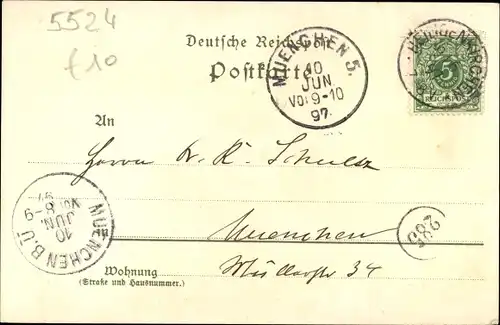 5524
£10
Deutsche Reichspost
Postkarte
MUENCHEN 5.
10
JUN
Vor 9-10
97.
5
REICHSPOST
An
Herrn Dr. K. Schulz
Muenchen
285
MUENCHEN B.Ü
10
JUN
Vor 8-9
97
Müllerstr 34
Wohnung
(Straße und Hausnummer.)